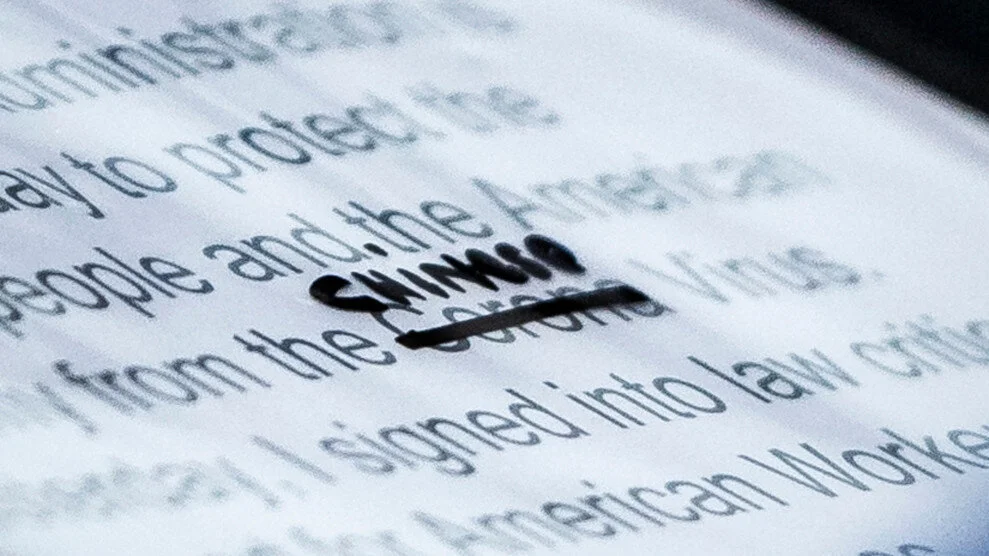 dministration
ay to protect the
people and the American
CHINESE
y from the Corona Virus.
. I signed into law critic
for American Worke